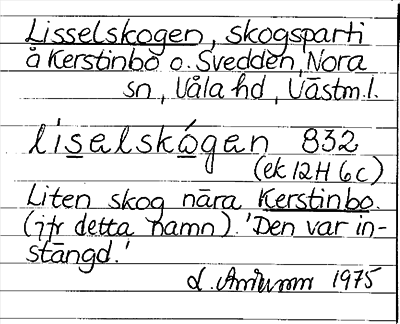 Lisselskogen, skogsparti
å Kerstinbo o. Svedden, Nora
sn, Våla hd, Västm.l.
liselskógen 832
(ek 12H 6c)
Liten skog nära Kerstinbo.
(jfr detta namn). 'Den var in-
stängd.'
1975